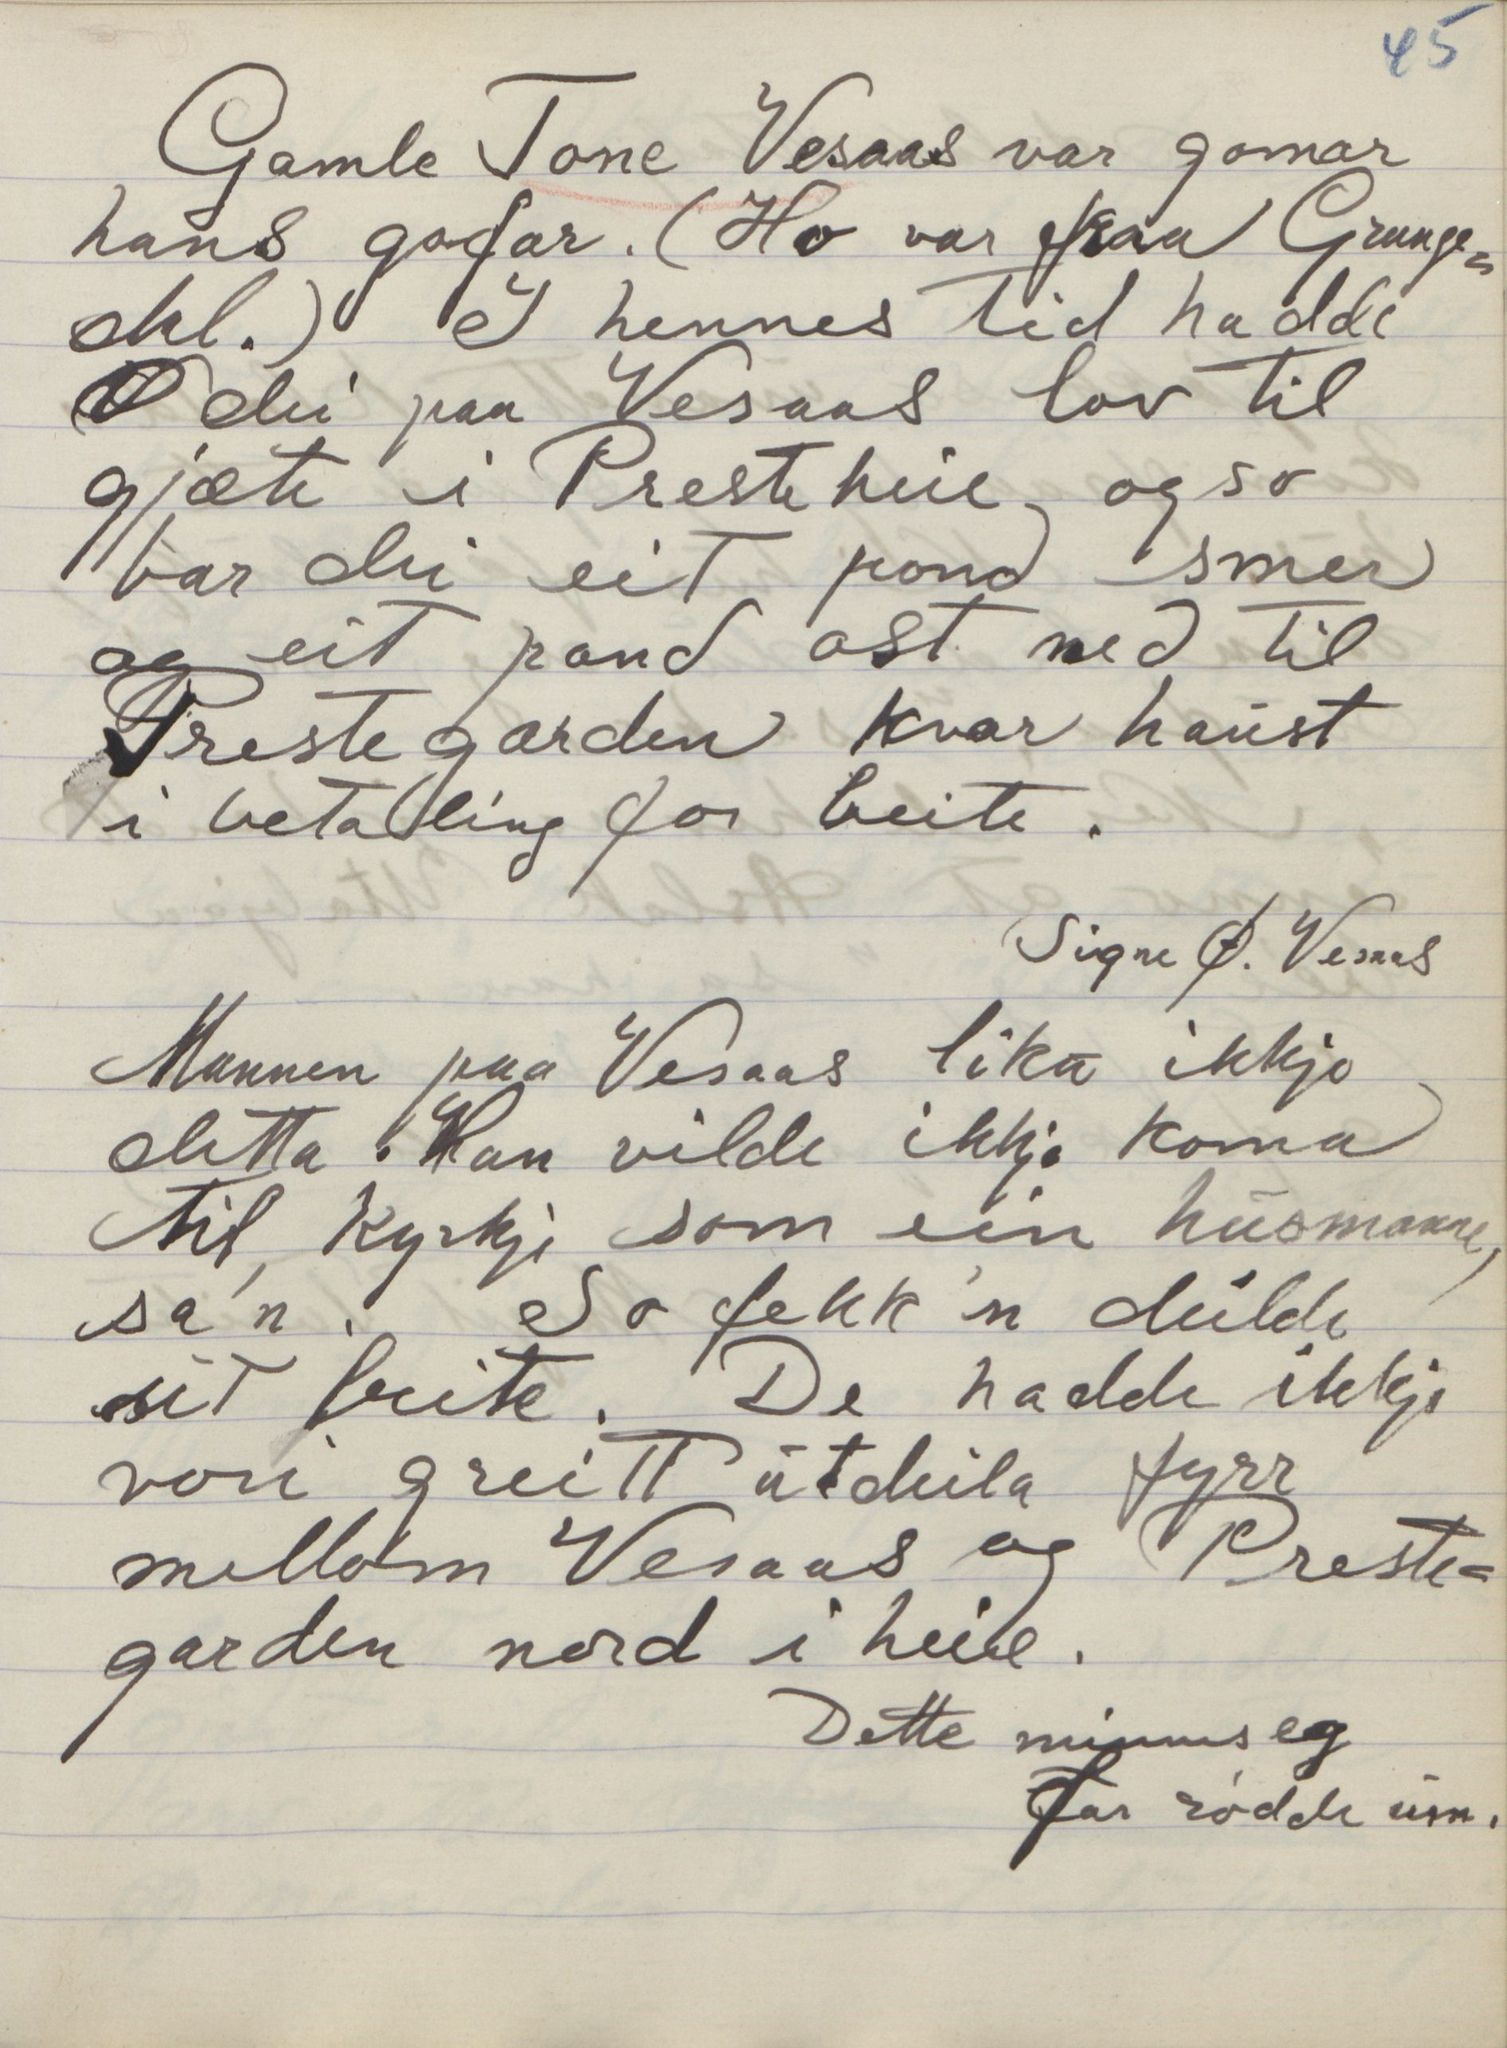 45
Gamle Tone Vesaas var gomor
hans gofar. (Ho var fraa Grunge-
dal.) I hennes tid hadde
dei paa Vesaas lov til
gjæte i Presteheie, og so
bar dei eit pond smer
og eit pond ost ned til
Prestegarden kvar haust
i betaling for beite.
Signe Ø. Vesaas
Mannen paa Vesaas lika ikkje
detta. Han vilde ikkje koma
til kyrkje som ein husmanne,
sa'n. So fekk 'n deilde
sit beite. De hadde ikkje
vori greitt utdeila fyrr
mellom Vesaas og Preste-
garden nord i heie.
Dette minnus eg
far rødde um.